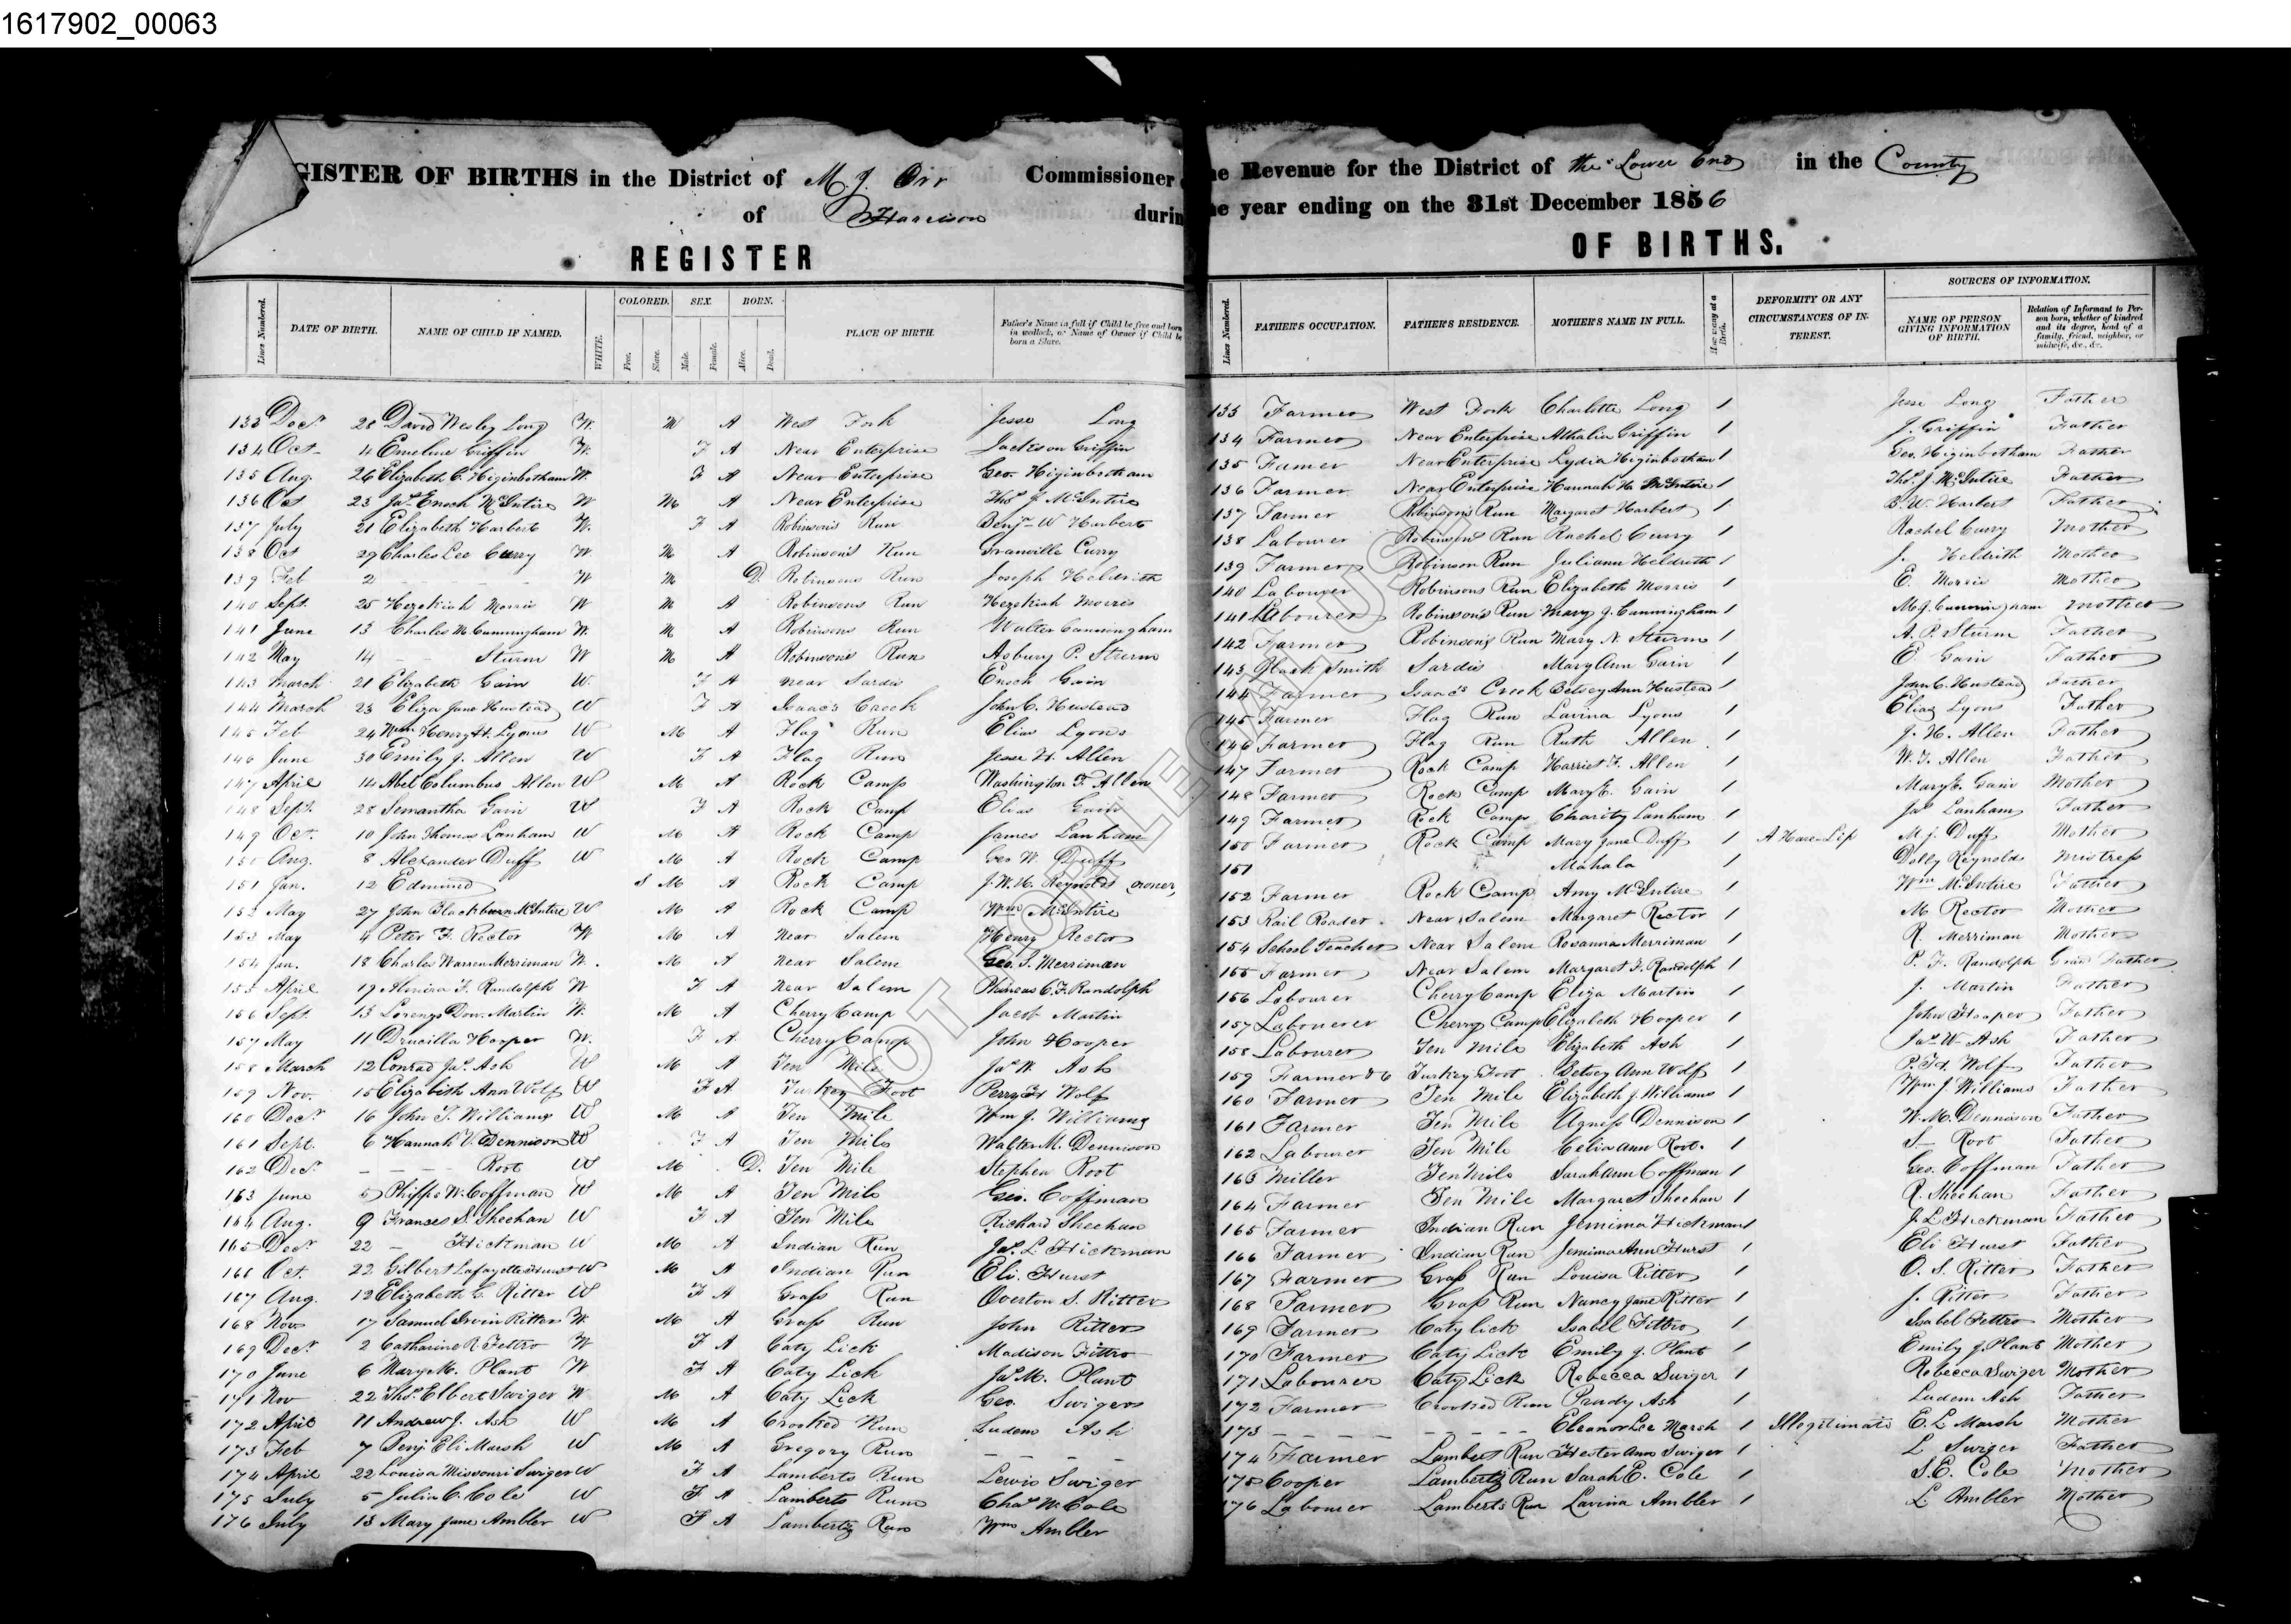 1617902_00063
GISTER OF BIRTHS in the District of M. J. Orr Commissioner
of Harrison durin
REGISTER
Lines Numbered. DATE OF BIRTH. NAME OF CHILD IF NAMED. WHITE. COLORED. Free. Slave. SEX. Male. Female. BORN. Alive. Dead. PLACE OF BIRTH. Father's Name in full if Child be free and born in wedlock, or Name of Owner if Child be born a Slave.
133 Decr 28 David Wesley Long W. M A West Fork Jesse Long
134 Oct 4 Emeline Griffin W. F A Near Enterprise Jackson Griffin
135 Aug. 26 Elizabeth C. Higinbotham W. F A Near Enterprise Geo. Higinbotham
136 Oct 23 Jas Enoch McIntire W M A Near Enterprise Thos J McIntire
137 July 21 Elizabeth Harbert W. F A Robinson's Run Benjn W Harbert
138 Oct 29 Charles Lee Curry W M A Robinson's Run Granville Curry
139 Feb 2 - - - - W M D. Robinsons Run Joseph Heldrith
140 Sept. 25 Hezekiah Morris W M A Robinsons Run Hezekiah Morris
141 June 13 Charles M. Cunningham W. M A Robinsons Run Walter Cunningham
142 May 14 - - Sturm W M A Robinson's Run Asbury P. Sturm
143 March 21 Elizabeth Gain W. F A near Sardis Enoch Gain
144 March 23 Eliza Jane Hustead W F A Isaac's Creek John C. Hustead
145 Feb 24 Wm Henry H. Lyons W M A Flag Run Elias Lyons
146 June 30 Emily J. Allen W F A Flag Run Jesse H. Allen
147 April 14 Abel Columbus Allen W M A Rock Camp Washington F. Allen
148 Sept. 28 Semantha Gain W F A Rock Camp Elias Gain
149 Oct. 10 John Thomas Lanham W M A Rock Camp James Lanham
150 Aug. 8 Alexander Duff W M A Rock Camp Geo W. Duff
151 Jan. 12 Edmund S M A Rock Camp J. W. H. Reynolds owner,
152 May 27 John Blackburn McIntire W M A Rock Camp Wm McIntire
153 May 4 Peter F. Rector W M A Near Salem Henry Rector
154 Jan. 18 Charles Warren Merriman W. M A near Salem Geo. S. Merriman
155 April 19 F. Randolph W F A near Salem Phineas C. F. Randolph
156 Sept 13 Lorenzo Dow. Martin W. M A Cherry Camp Jacob Martin
157 May 11 Drucilla Hooper W. F A Cherry Camp John Hooper
158 March 12 Conrad Jas. Ash W M A Ten Mile Jas W. Ash
159 Nov. 15 Elizabeth Ann Wolf W F A Turkey Foot Perry H Wolf
160 Decr 16 John T. Williams W M A Ten Mile Wm J. Williams
161 Sept. 6 Hannah V. Dennison W F A Ten Mile Walter M. Dennison
162 Decr - - - - Root W M D. Ten Mile Stephen Root
163 June 5 Phipps W. Coffman W M A Ten Mile Geo. Coffman
164 Aug. 9 Frances S. Sheehan W F A Ten Mile Richard Sheehan
165 Decr 22 - Hickman W M A Indian Run Jas. L Hickman
166 Oct. 22 Gilbert Lafayette Hurst W M A Indian Run Eli Hurst
167 Aug. 12 Elizabeth C. Ritter W F A Grass Run Overton S. Ritter
168 Nov 17 Samuel Irvin Ritter W. M A Grass Run John Ritter
169 Decr 2 Catharine R. Fettro W F A Caty Lick Madison Fittro
170 June 6 Mary M. Plant W F A Caty Lick Jas M. Plant
171 Nov 22 Thos. Elbert Swiger W M A Caty Lick Geo. Swiger
172 April 11 Andrew J. Ash W M A Crooked Run Ludem Ash
173 Feb 7 Benj Eli Marsh W M A Gregory Run - - - -
174 April 22 Louisa Missouri Swiger W F A Lamberts Run Lewis Swiger
175 July 5 Julia C. Cole W F A Lamberts Run Chas W. Cole
176 July 13 Mary Jane Ambler W F A Lamberts Run Wm Ambler
he Revenue for the District of the Lower End in the County
he year ending on the 31st December 1856
OF BIRTHS.
Lines Numbered. FATHER'S OCCUPATION. FATHER'S RESIDENCE. MOTHER'S NAME IN FULL. How many at a Birth. DEFORMITY OR ANY CIRCUMSTANCES OF INTEREST. SOURCES OF INFORMATION. NAME OF PERSON GIVING INFORMATION OF BIRTH. Relation of Informant to Person born, whether of kindred and its degree, head of a family, friend, neighbor, or midwife, &c., &c.
133 Farmer West Fork Charlotte Long 1 Jesse Long Father
134 Farmer Near Enterprise Athalia Griffin 1 J. Griffin Father
135 Farmer Near Enterprise Lydia Higinbotham 1 Geo. Higinbotham Father
136 Farmer Near Enterprise Hannah H. McIntire 1 Thos. J. McIntire Father
137 Farmer Robinson's Run Margaret Harbert 1 B. W. Harbert Father
138 Labourer Robinson's Run Rachel Curry 1 Rachel Curry Mother
139 Farmer Robinson Run Juliann Heldrith 1 J. Heldrith Mother
140 Labourer Robinsons Run Elizabeth Morris 1 E. Morris Mother
141 Labourer Robinson's Run Mary J. Cunningham 1 M. J. Cunningham Mother
142 Farmer Robinson's Run Mary N. Sturm 1 A. P. Sturm Father
143 Black Smith Sardis Mary Ann Gain 1 E Gain Father
144 Farmer Isaac's Creek Betsey Ann Hustead 1 John C. Hustead Father
145 Farmer Flag Run Lavina Lyons 1 Elias Lyons Father
146 Farmer Flag Run Ruth Allen 1 J. H. Allen Father
147 Farmer Rock Camp Harriet F. Allen 1 W. F. Allen Father
148 Farmer Rock Camp Mary E. Gain 1 Mary E. Gain Mother
149 Farmer Rock Camp Charity Lanham 1 Jas Lanham Father
150 Farmer Rock Camp Mary Jane Duff 1 A Hare Lip M. J. Duff Mother
151 Mahala 1 Dolly Reynolds Mistress
152 Farmer Rock Camp Amy McIntire 1 Wm McIntire Father
153 Rail Roader Near Salem Margaret Rector 1 M Rector Mother
154 School Teacher Near Salem Rosanna Merriman 1 R. Merriman Mother
155 Farmer Near Salem Margaret F. Randolph 1 P. F. Randolph Grand Father
156 Labourer Cherry Camp Eliza Martin 1 J. Martin Father
157 Labourer Cherry Camp Elizabeth Hooper 1 John Hooper Father
158 Labourer Ten Mile Elizabeth Ash 1 Jas W Ash Father
159 Farmer &c Turkey Foot Betsey Ann Wolf 1 P. H. Wolf Father
160 Farmer Ten Mile Elizabeth J. Williams 1 Wm J. Williams Father
161 Farmer Ten Mile Agness Dennison 1 W. M. Dennison Father
162 Labourer Ten Mile Celia Ann Root. 1 S- Root Father
163 Miller Ten Mile Sarah Ann Coffman 1 Geo. Coffman Father
164 Farmer Ten Mile Margaret Sheehan 1 R. Sheehan Father
165 Farmer Indian Run Jemima Hickman 1 J. L Hickman Father
166 Farmer Indian Run Jemima Ann Hurst 1 Eli Hurst Father
167 Farmer Grass Run Louisa Ritter 1 O. S. Ritter Father
168 Farmer Grass Run Nancy Jane Ritter 1 J. Ritter Father
169 Farmer Caty lick Isabel Fittro 1 Isabel Fettro Mother
170 Farmer Caty Lick Emily J. Plant 1 Emily J. Plant Mother
171 Labourer Caty Lick Rebecca Swiger 1 Rebecca Swiger Mother
172 Farmer Crooked Run Prudy Ash 1 Ludem Ash Father
173 - - - - - - - - - Eleanor Lee Marsh 1 Illegitimate E. L Marsh Mother
174 Farmer Lambert Run Hester Ann Swiger 1 L Swiger Father
175 Cooper Lamberts Run Sarah E. Cole 1 S. E. Cole Mother
176 Labourer Lambert's Run Lavina Ambler 1 L Ambler Mother
NOT FOR LEGAL USE